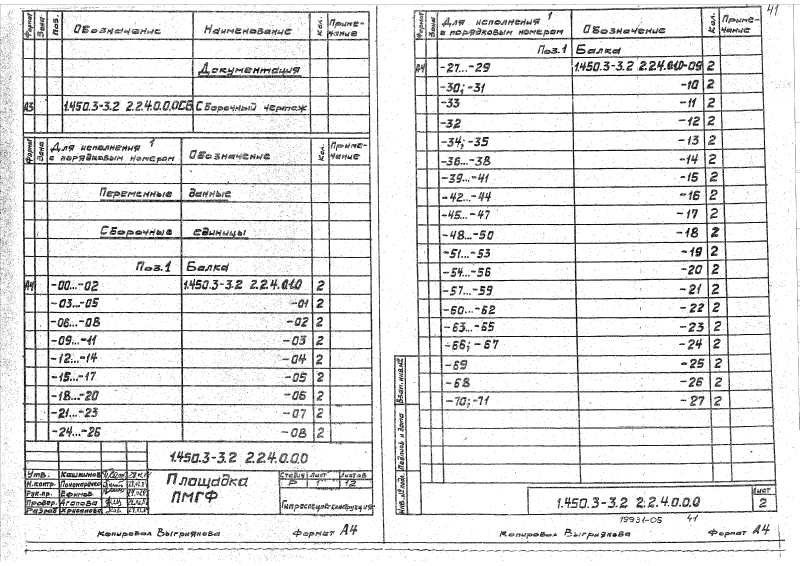 Формат Зона Поз. Обозначение Наименование Кол. Приме-чание
Документация
А3 1.450.3-3.2 2.2.4.0.0.0СБ Сборочный чертеж
Формат Зона Для исполнения 1 с порядковым номером Обозначение Кол. Приме-чание
Переменные данные
Сборочные единицы
Поз.1 Балка
А4 -00...-02 1.450.3-3.2 2.2.4.0.1.0 2
-03...-05 -01 2
-06...-08 -02 2
-09...-11 -03 2
-12...-14 -04 2
-15...-17 -05 2
-18...-20 -06 2
-21...-23 -07 2
-24...-26 -08 2
1.450.3-3.2 2.2.4.0.0.0
Утв. Кашкинов
Н.контр. Пономаренко
Рук.пр. Ефимов
Провер. Агапова
Разраб.
Площадка
ПМГФ
Стадия Лист Листов
Р 1 12
Гипроспецлегконструкция
Копировал Выгриянова Формат А4
41
Формат Зона Для исполнения 1 с порядковым номером Обозначение Кол. Приме-чание
Поз.1 Балка
А4 -27...-29 1.450.3-3.2 2.2.4.0.1.0-09 2
-30; -31 -10 2
-33 -11 2
-32 -12 2
-34; -35 -13 2
-36...-38 -14 2
-39...-41 -15 2
-42...-44 -16 2
-45...-47 -17 2
-48...-50 -18 2
-51...-53 -19 2
-54...-56 -20 2
-57...-59 -21 2
-60...-62 -22 2
-63...-65 -23 2
-66; -67 -24 2
-69 -25 2
-68 -26 2
-70; -71 -27 2
Инв.№подл. Подпись и дата Взам.инв.№
1.450.3-3.2 2.2.4.0.0.0
Лист
2
19931-05 41
Копировал Выгриянова Формат А4